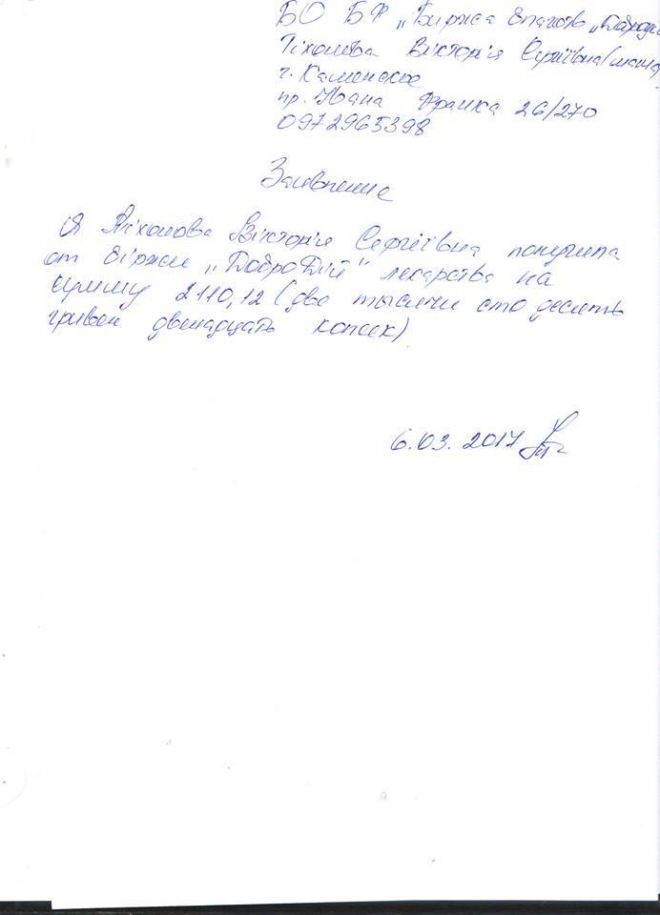 БО БФ „Биржа благотв „Доброді
Тіхонова Вікторія Сергіївна (мама
г. Каменское
пр. Івана Франка 26/270
0972965398
Заявление
Я Тіхонова Вікторія Сергіївна получила
от Біржи „ДоброДій" лекарства на
сумму 2110,12 (две тысячи сто десять
гривен двенадцать копеек)
6.03.2017